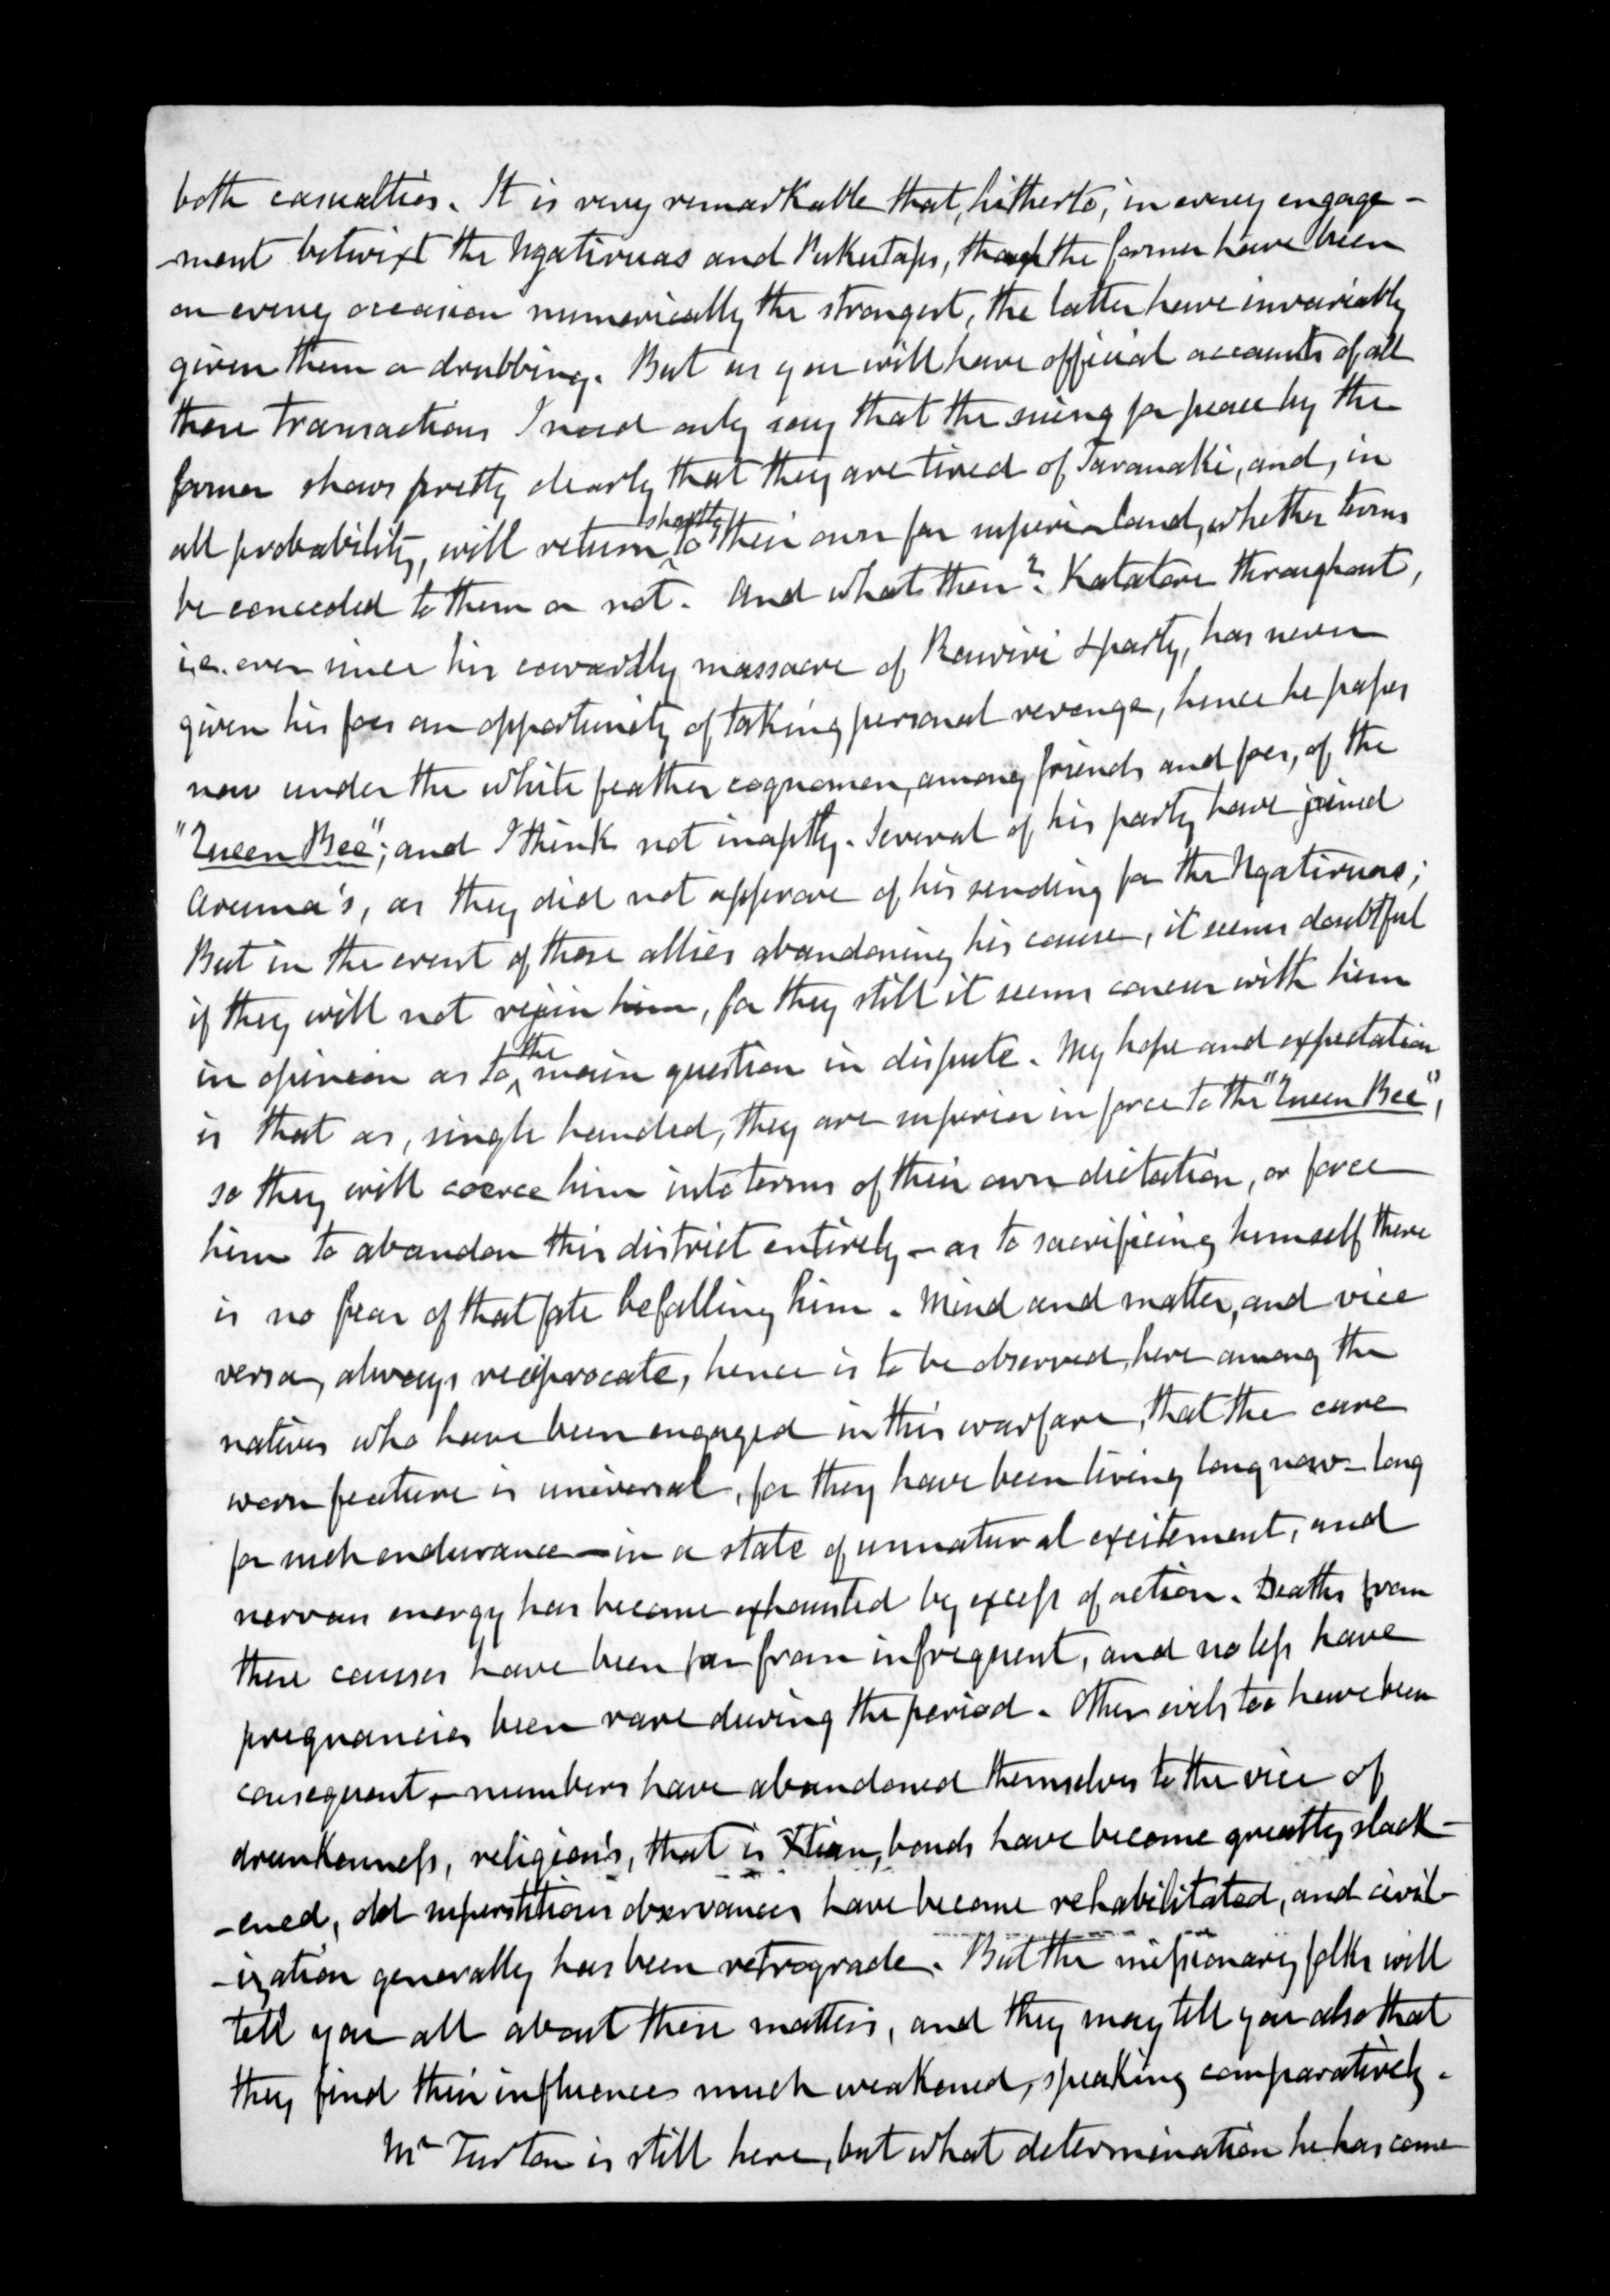 both casualties. It is very remarkable that, hitherto, in every engage-
-ment betwixt the Ngatiruas and Puketapu, though the former have been
on every occasion numerically the strongest, the latter have invariably
given them a drubbing. But as you will have official accounts of all
these transactions I need only say that the suing for peace by the
former shows pretty clearly that they are tired of Taranaki, and, in
all probability, will return shortly to their own far superior land, whether terms
be conceded to them or not. And what then? Katatore throughout,
i.e. ever since his cowardly massacre of Rawiri & party, has never
given his foes an opportunity of taking personal revenge, hence he passes
now under the white feather cognomen, among friends and foes, of the
"Queen Bee"; and I think not inaptly. Several of his party have joined
Arama's, as they did not approve of his sending for the Ngatiruas;
But in the event of those allies abandoning his cause, it seems doubtful
if they will not rejoin him, for they still it seems concur with him
in opinion as to the main question in dispute. My hope and expectation
is that as, single handed, they are superior in force to the "Queen Bee",
so they will coerce him into terms of their own dictation, or force
him to abandon this district entirely - as to sacrificing himself there
is no fear of that fate befalling him. Mind and matter, and vice
versa, always reciprocate, hence is to be observed, here among the
natives who have been engaged in this warfare, that the care
worn feature is universal, for they have been living long now - long
for such endurance - in a state of unnatural excitement, and
nervous energy has become exhausted by excess of action. Deaths from
these causes have been far from infrequent, and no less have
pregnancies been rare during the period. Other evils too have been
consequent, - numbers have abandoned themselves to the vice of
drunkenness, religious, that is Xtian, bonds have become greatly slack-
-ened, old superstitious observances have become rehabilitated, and civil-
-ization generally has been retrograde. But the missionary folks will
tell you all about these matters, and they may tell you also that
they find their influences much weakened, speaking comparatively.
Mr Turton is still here, but what determination he has come